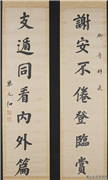 謝安不倦登臨賞
支遁同看内外篇